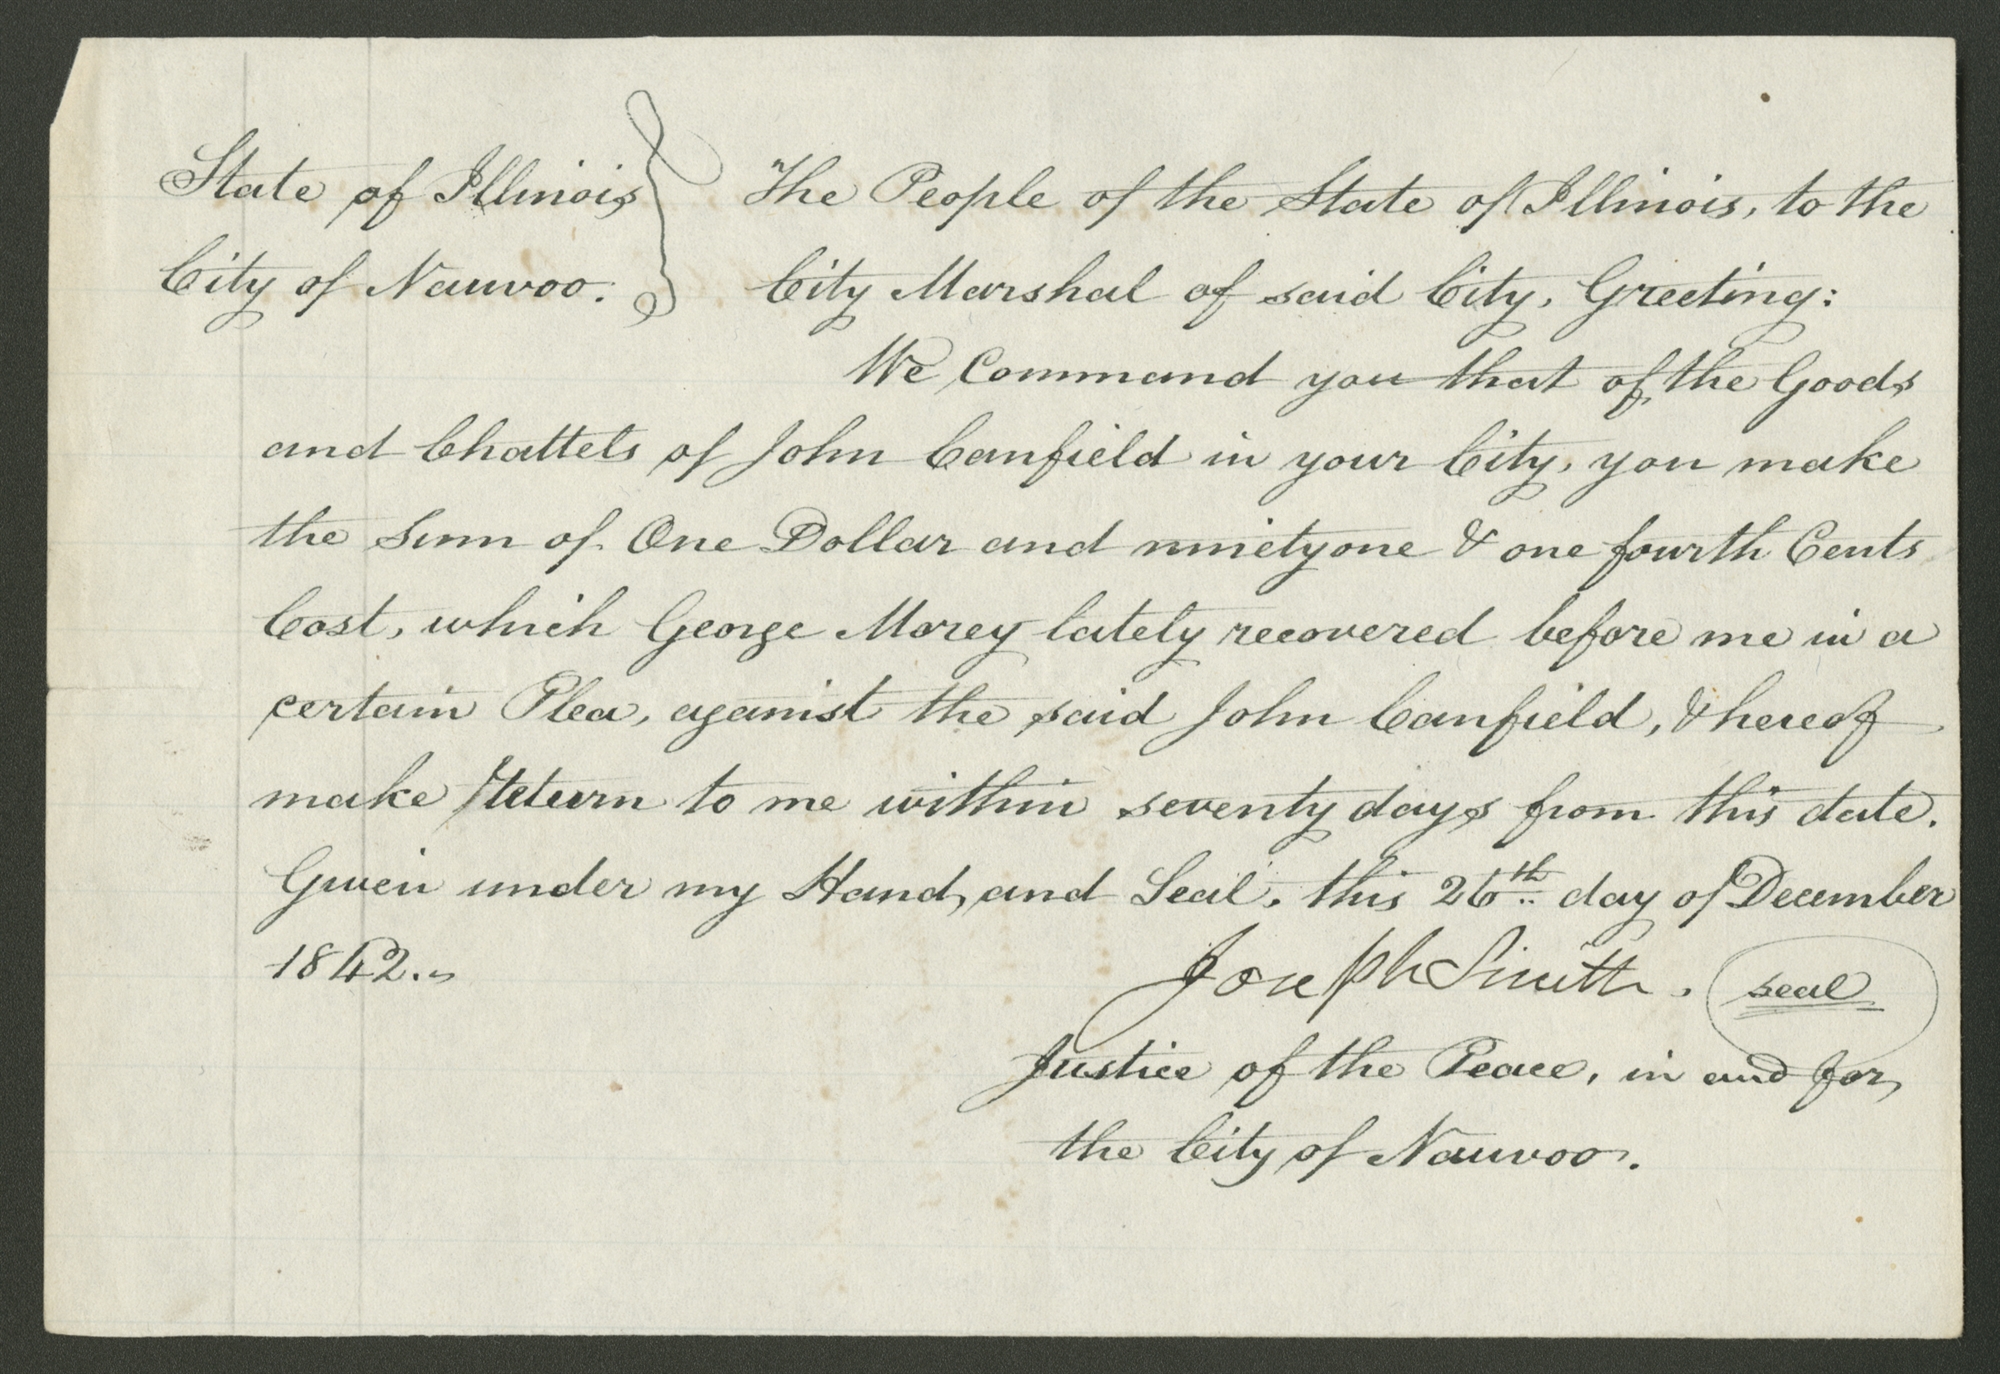 State of Illinois } The People of the State of Illinois, to the
City of Nauvoo. City Marshal of said City, Greeting:
We Command you that of the Goods
and Chattels of John Canfield in your City, you make
the Sum of One Dollar and ninetyone & one fourth Cents
Cost, which George Morey lately recovered before me in a
certain Plea, against the said John Canfield, & hereof
make return to me within seventy days from this date.
Given under my Hand, and Seal, this 26th day of December
1842.
Joseph Smith. seal
Justice of the Peace, in and for,
the City of Nauvoo.